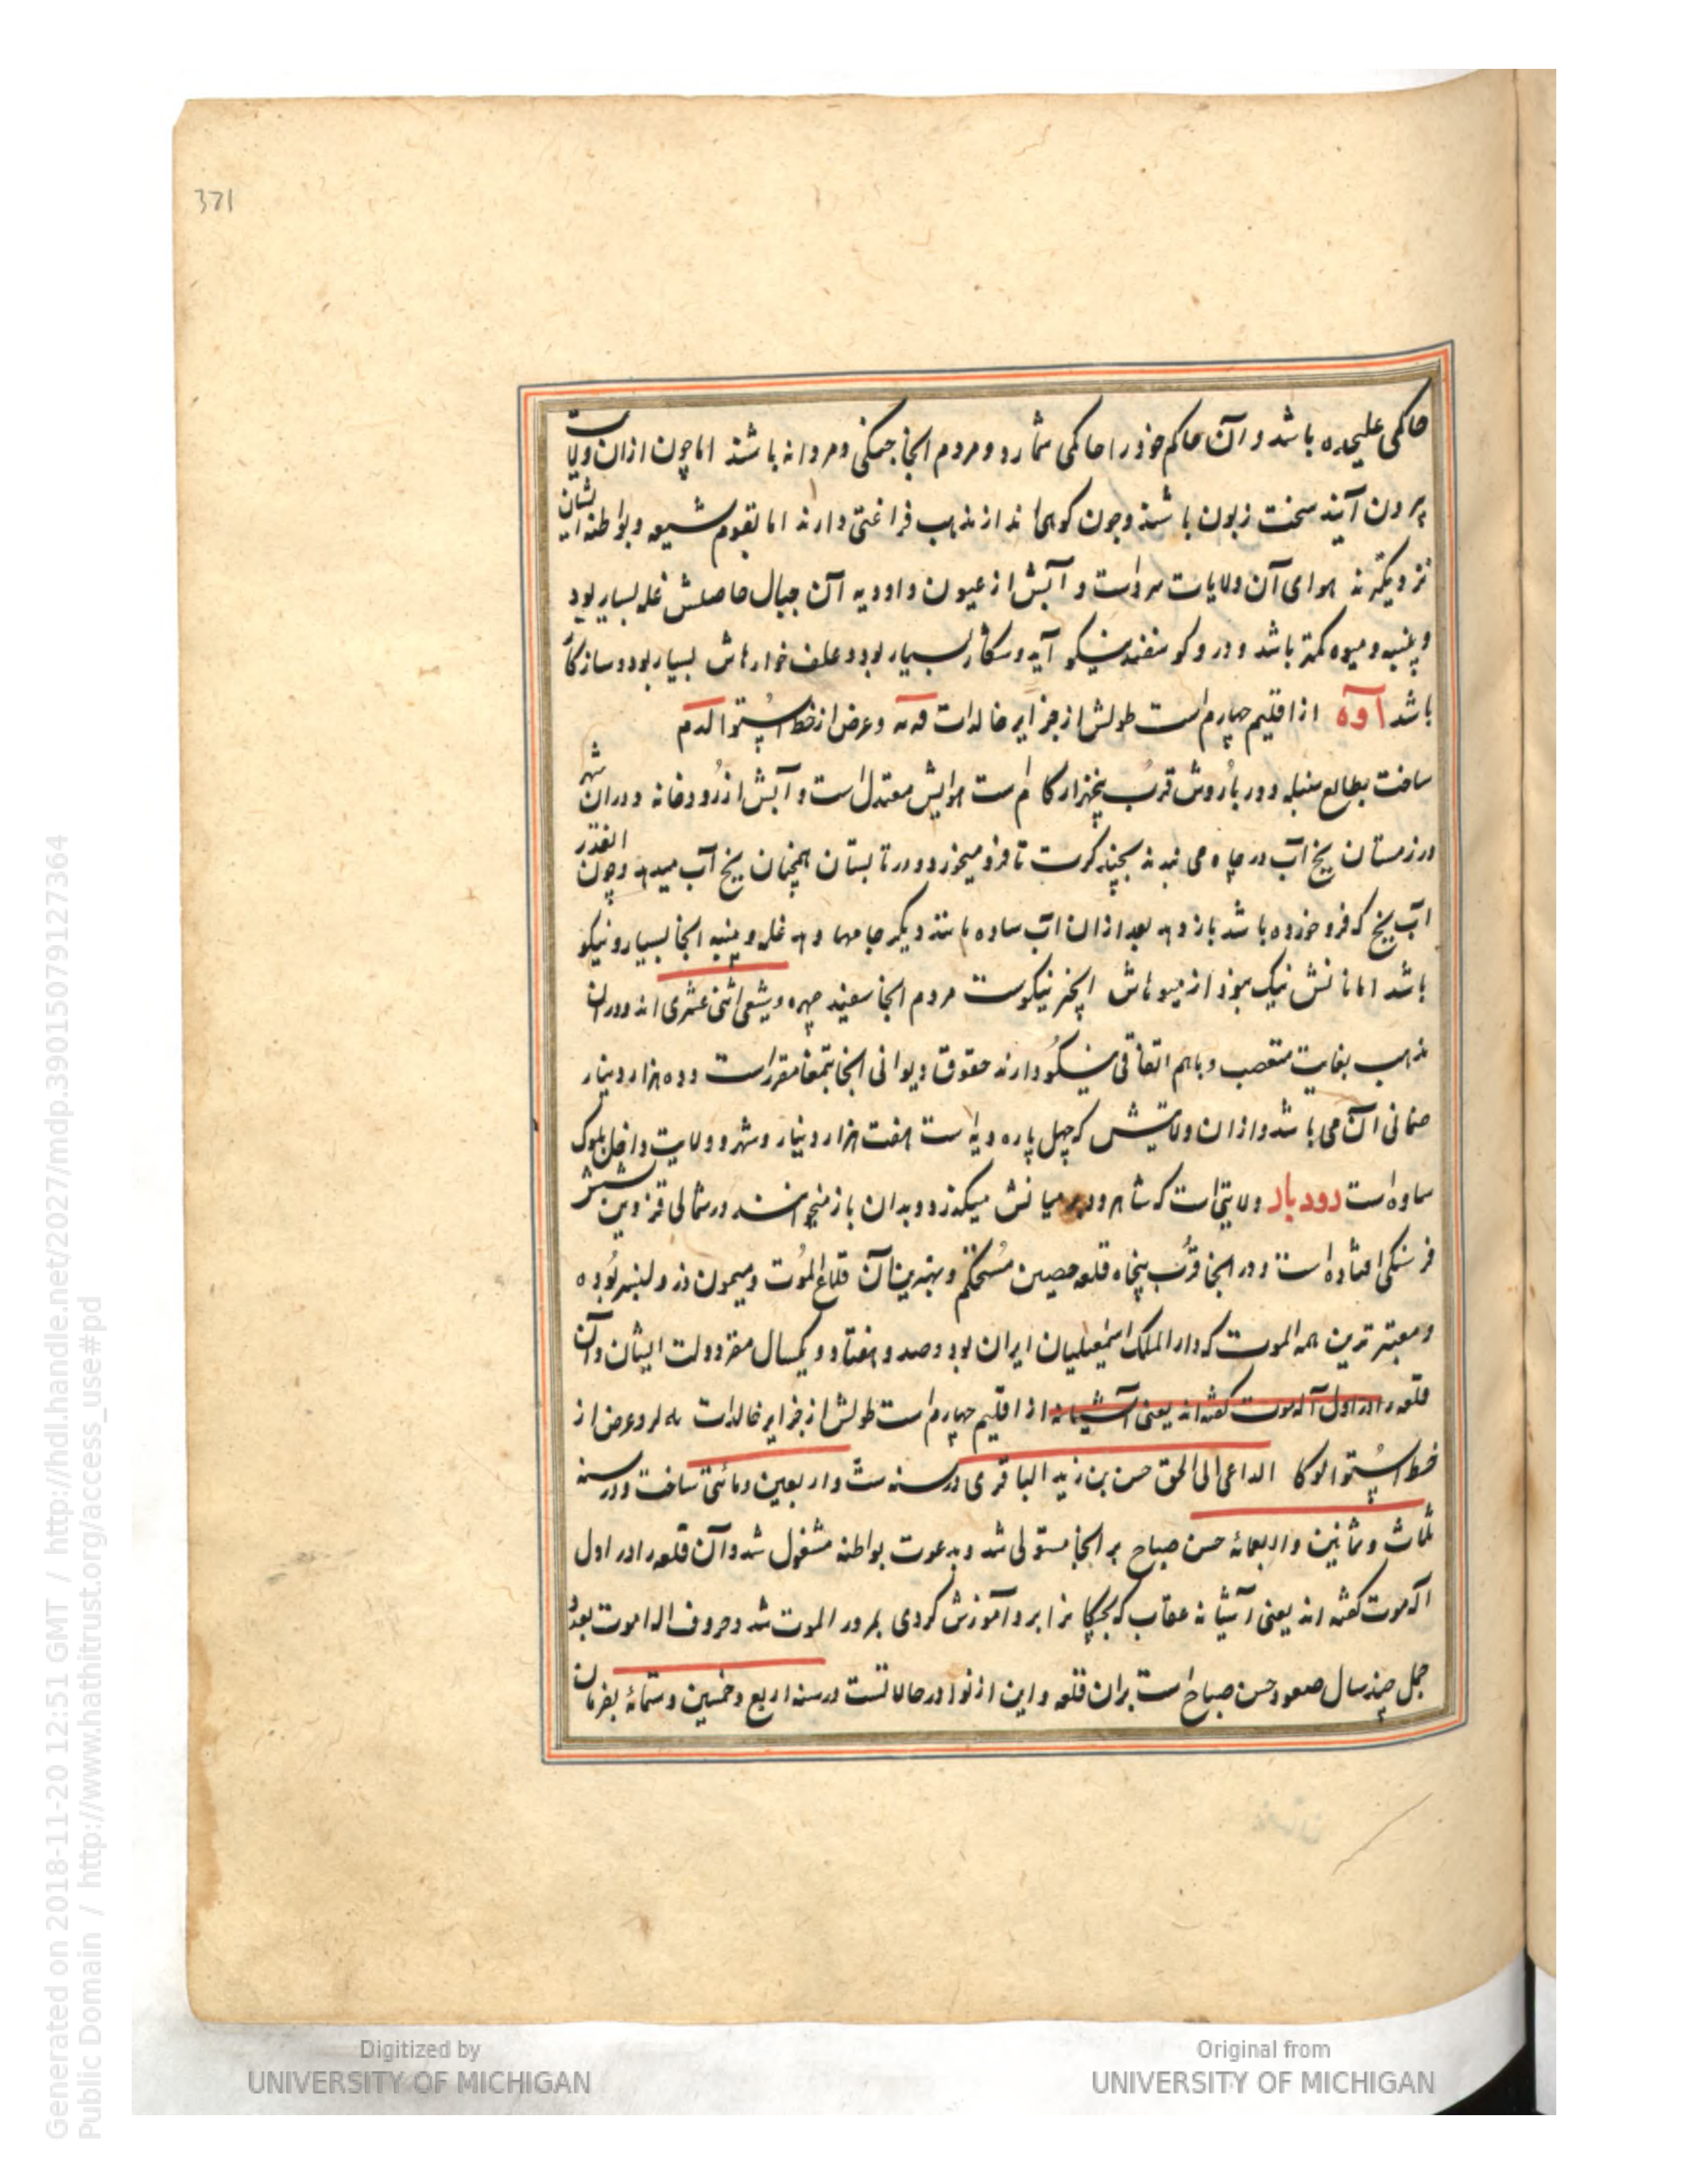 371
حاکمی علیحده باشد و آن حاکم خود را حاکمی شمارد و مردم آنجا جنکی و مردانه باشند اما چون ازان ولایت
بیرون آیند سخت زبون باشند و چون کوهی اند از مذهب فراغتی دارند اما بقوم شیعه و بواطنه ایشان
نزدیکترند هوای آن ولایات سرد است و آبش از عیون و اودیه آن جبال حاصلش غله بسیار بود
و پنبه و میوه کمتر باشد و درو کوسفند نیکو آید و شکار بسیار بود و علف خوارهاش بسیار بود و سازکار
باشد آوه از اقلیم چهارم است طولش از جزایر خالدات فه نه و عرض از خط استوا لد م
ساخت بطالع سنبله و دور باروش قرب پنجهزار کام است هوایش معتدل است و آبش از رودخانه و دران شهر
در زمستان یخ آب در چاه می بندند بچینه کرت تا فرو میخورد و در تابستان همچنان یخ آب میدهد و چون انقدر
آب یخ که فرو خورده باشد باز دهد بعد ازان آب ساده مانند دیکر چاهها دهد غله و پنبه انجا بسیار و نیکو
باشد اما نانش نیک نبود از میوهاش انجیر نیکوست مردم انجا سفید چهره و شیعی اثنی عشری اند و دران
مذهب بغایت متعصب و باهم اتفاقی نیکو دارند حقوق دیوانی انجا بتمغا مقرر است و ده هزار دینار
ضمانی آن می باشد و ازان ولایتش که چهل پاره دیه است هفت هزار دینار و شهر و ولایت داخل بلوک
ساوه است رودبار ولایتی است که شاهرود بر میانش میکذرد و بدان باز میخوانند در شمالی قزوین شش
فرسنکی افتاده است و در انجا قرب پنجاه قلعه حصین مستحکم و بهترین آن قلاع الموت و میمون دز و لنبسر بوده
و معتبر ترین همه الموت که دار الملک اسمعیلیان ایران بود و صد و هفتاد و یکسال مقر دولت ایشان و آن
قلعه را در اول آله موت کفته اند یعنی آشیانه از اقلیم چهارم است طولش از جزایر خالدات په لر و عرض از
خط استوا لوکا الداعی الی الحق حسن بن زید الباقری در سنه ست و اربعین و مائتی ساخت و در سنه
ثلث و ثمانین و اربعمائه حسن صباح بر انجا مستولی شد و بدعوت بواطنه مشغول شد و آن قلعه را در اول
اله موت کفته اند یعنی آشیانه عقاب که بچکانرا برو آموزش کردی بمرور الموت شد و حروف اله اموت بعدد
جمل چند سال صعود حسن صباح است بران قلعه و این از نوادر حالاتست در سنه اربع و خمسین و ستمائه بفرمان
Digitized by
UNIVERSITY OF MICHIGAN
Original from
UNIVERSITY OF MICHIGAN
Generated on 2018-11-20 12:51 GMT / http://hdl.handle.net/2027/mdp.39015079127364
Public Domain / http://www.hathitrust.org/access_use#pd